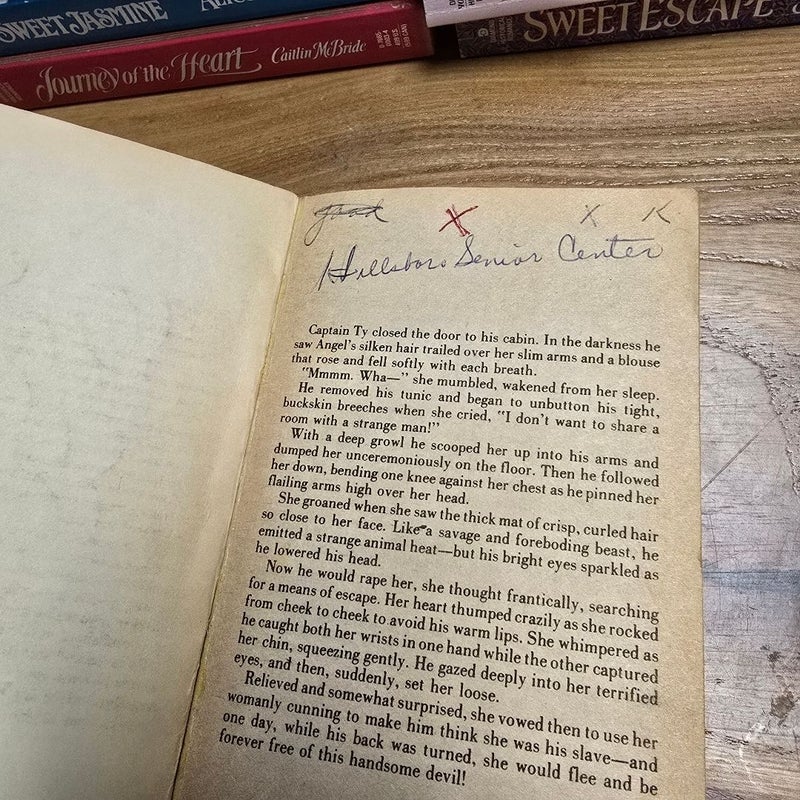 SWEET JASMINE
Journey of the Heart Caitlin McBride
SWEET ESCAPE
good X X K
Hillsboro Senior Center
Captain Ty closed the door to his cabin. In the darkness he
saw Angel's silken hair trailed over her slim arms and a blouse
that rose and fell softly with each breath.
"Mmmm. Wha—" she mumbled, wakened from her sleep.
He removed his tunic and began to unbutton his tight,
buckskin breeches when she cried, "I don't want to share a
room with a strange man!"
With a deep growl he scooped her up into his arms and
dumped her unceremoniously on the floor. Then he followed
her down, bending one knee against her chest as he pinned her
flailing arms high over her head.
She groaned when she saw the thick mat of crisp, curled hair
so close to her face. Like a savage and foreboding beast, he
emitted a strange animal heat—but his bright eyes sparkled as
he lowered his head.
Now he would rape her, she thought frantically, searching
for a means of escape. Her heart thumped crazily as she rocked
from cheek to cheek to avoid his warm lips. She whimpered as
he caught both her wrists in one hand while the other captured
her chin, squeezing gently. He gazed deeply into her terrified
eyes, and then, suddenly, set her loose.
Relieved and somewhat surprised, she vowed then to use her
womanly cunning to make him think she was his slave—and
one day, while his back was turned, she would flee and be
forever free of this handsome devil!